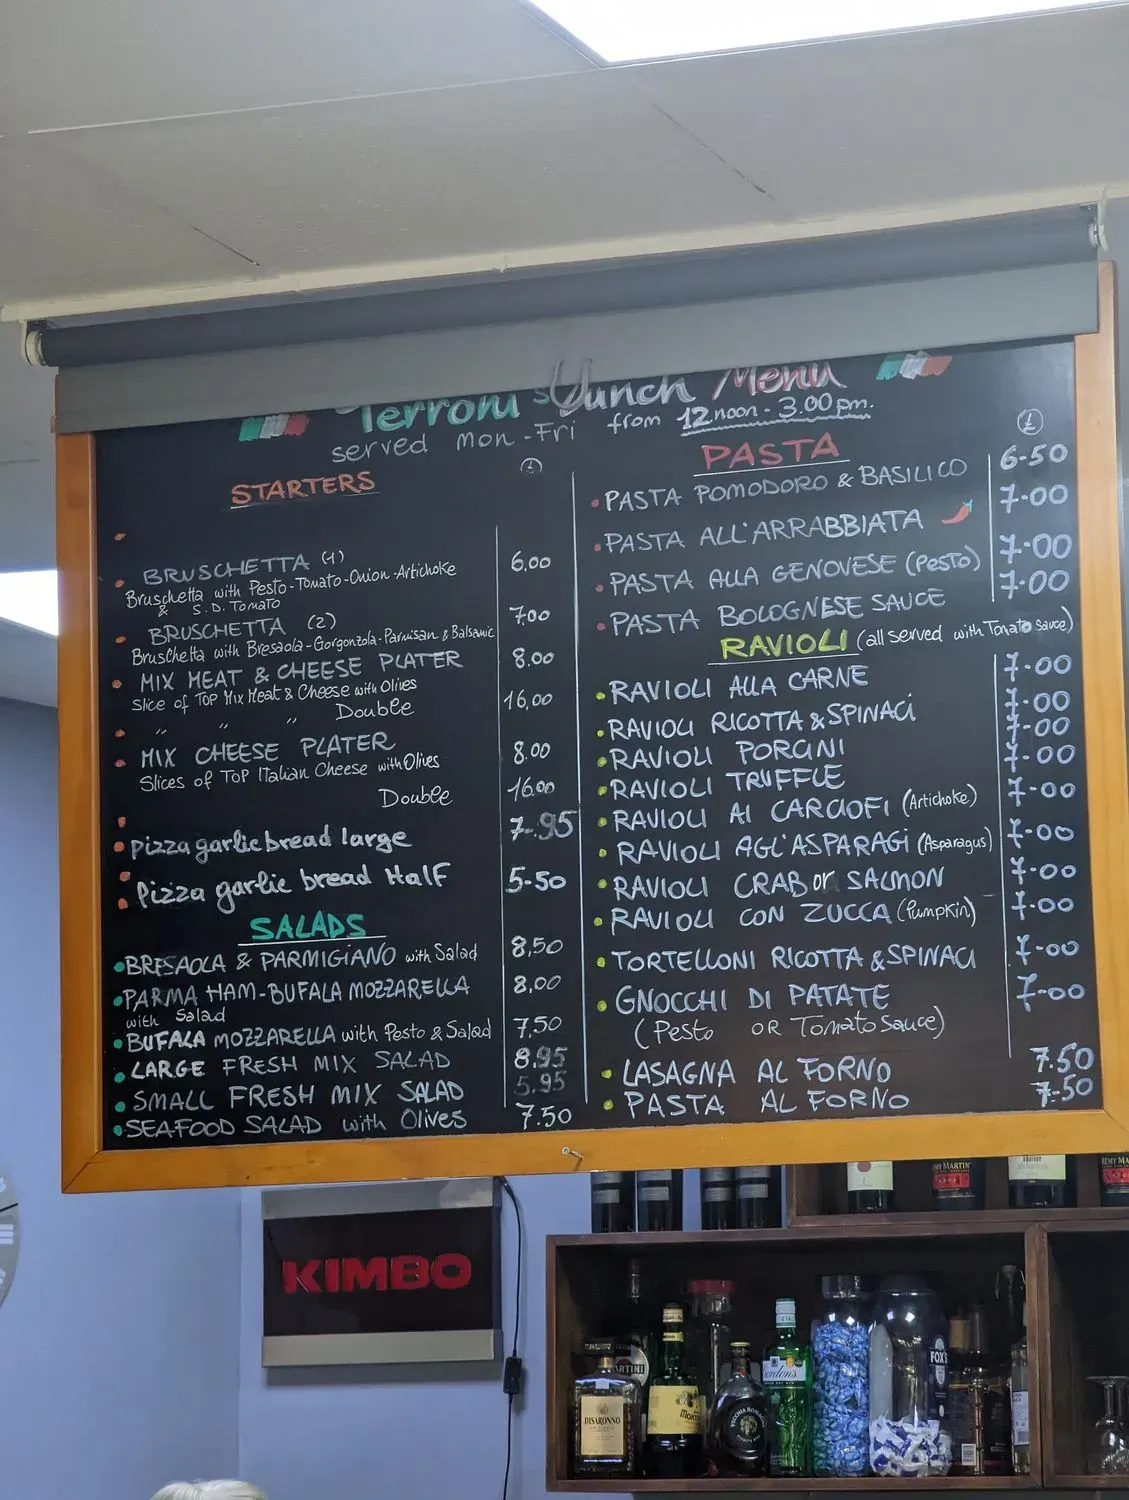 Terroni's Lunch Menu
served Mon-Fri from 12 noon - 3.00 pm.
STARTERS
£
BRUSCHETTA (1) 6,00
Bruschetta with Pesto-Tomato-Onion-Artichoke
& S.D. Tomato
BRUSCHETTA (2) 7,00
Bruschetta with Bresaola-Gorgonzola-Parmisan & Balsamic
MIX MEAT & CHEESE PLATER 8.00
Slice of TOP Mix Meat & Cheese with Olives
" " Double 16,00
MIX CHEESE PLATER 8.00
Slices of TOP Italian Cheese with Olives
Double 16.00
pizza garlic bread large 7-.95
pizza garlic bread Half 5-50
SALADS
BRESAOLA & PARMIGIANO with Salad 8,50
PARMA HAM-BUFALA MOZZARELLA 8,00
with Salad
BUFALA MOZZARELLA with Pesto & Salad 7,50
LARGE FRESH MIX SALAD 8.95
SMALL FRESH MIX SALAD 5.95
SEAFOOD SALAD with Olives 7.50
PASTA
£
PASTA POMODORO & BASILICO 6-50
PASTA ALL'ARRABBIATA 7-00
PASTA ALLA GENOVESE (Pesto) 7-00
PASTA BOLOGNESE SAUCE 7-00
RAVIOLI (all served with Tomato sauce)
RAVIOLI ALLA CARNE 7-00
RAVIOLI RICOTTA & SPINACI 7-00
RAVIOLI PORCINI 7-00
RAVIOLI TRUFFLE 7-00
RAVIOLI AI CARCIOFI (Artichoke) 7-00
RAVIOLI AGL'ASPARAGI (Asparagus) 7-00
RAVIOLI CRAB or SALMON 7-00
RAVIOLI CON ZUCCA (Pumpkin) 7-00
TORTELLONI RICOTTA & SPINACI 7-00
GNOCCHI DI PATATE 7-00
(Pesto OR Tomato Sauce)
LASAGNA AL FORNO 7.50
PASTA AL FORNO 7-50
KIMBO
RÉMY MARTIN
MARTINI
DISARONNO
Gordon's
VECCHIA ROMAGNA
FOX'S